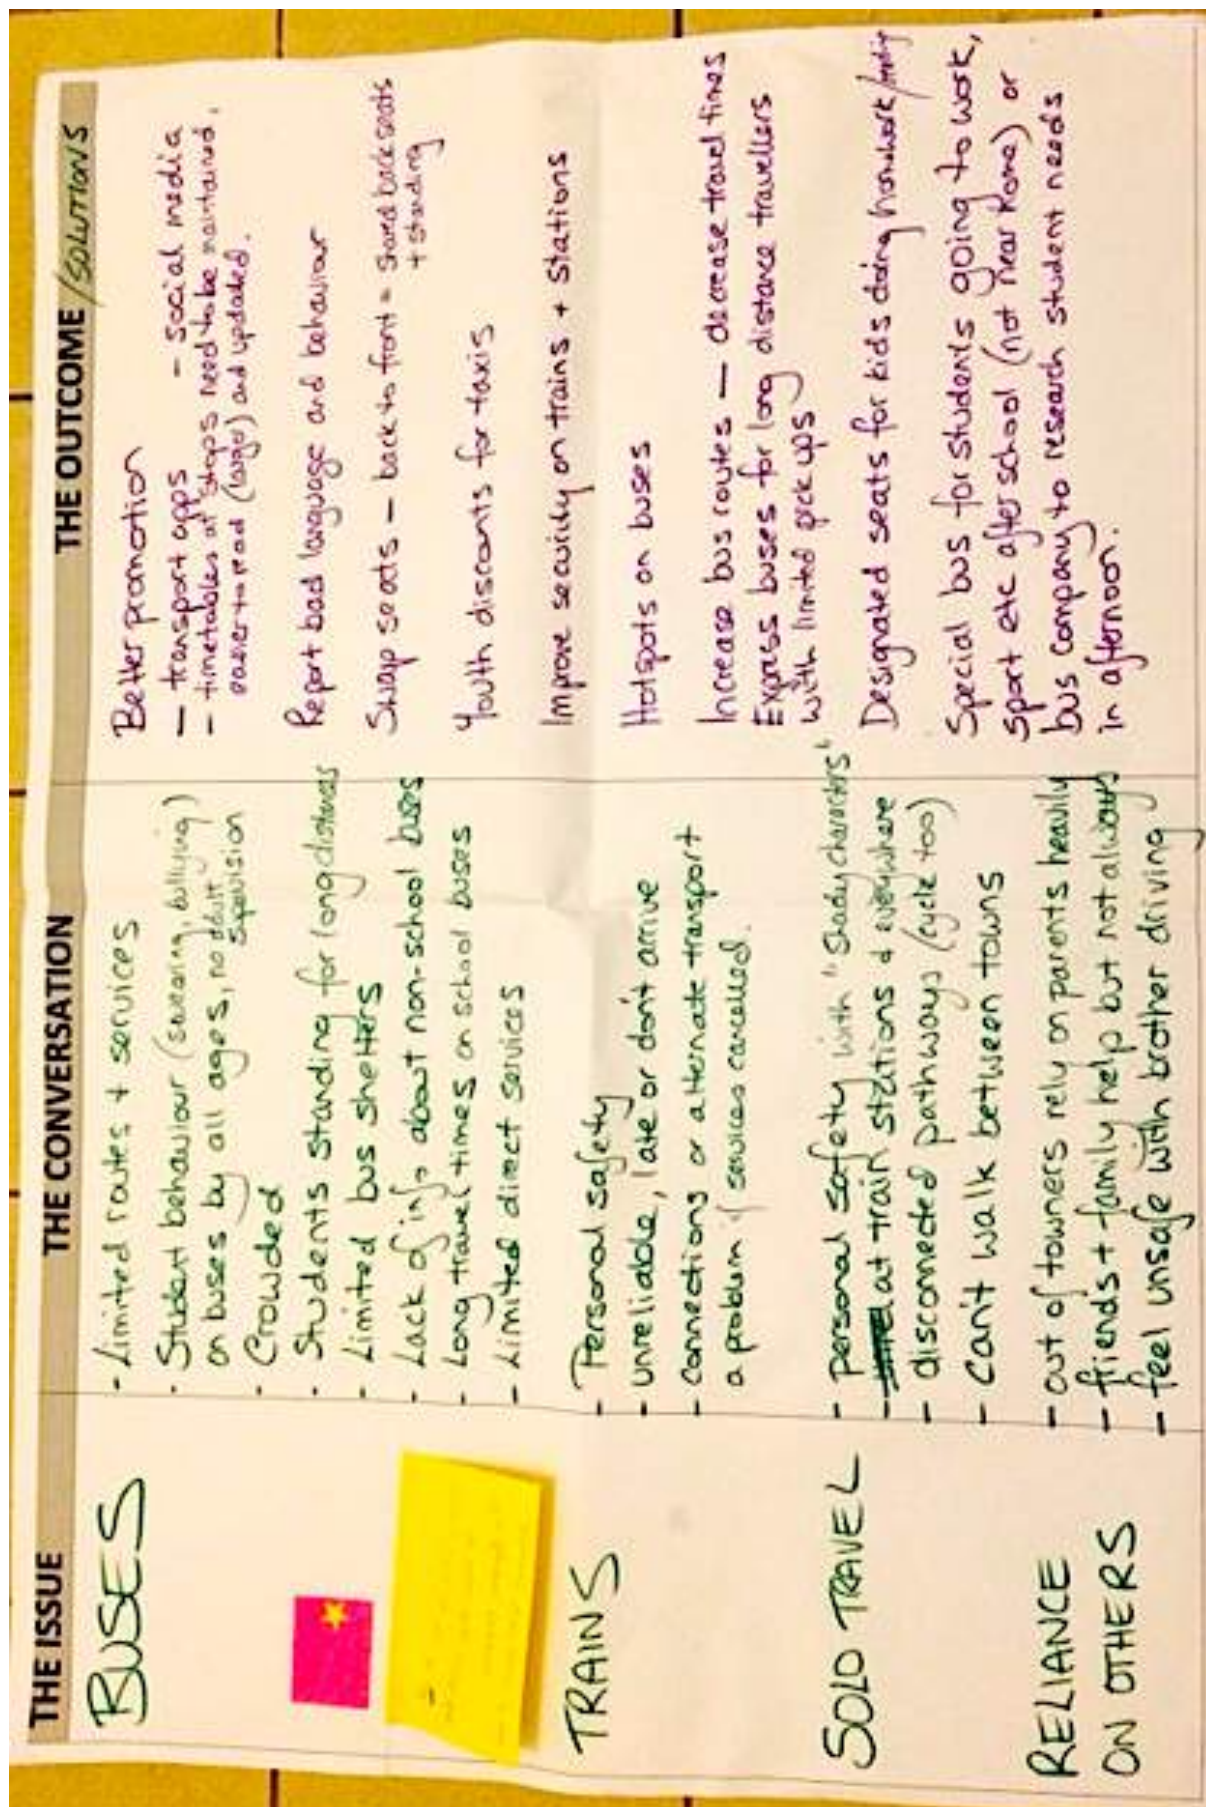 THE ISSUE
THE CONVERSATION
THE OUTCOME /SOLUTIONS
BUSES
- Limited routes + services
- Student behaviour (swearing, bullying)
on buses by all ages, no adult
supervision
- Crowded
- Students standing for long distances
- Limited bus shelters
- Lack of info about non-school buses
- Long travel times on school buses
- Limited direct services
TRAINS
- Personal safety
- unreliable, late or don't arrive
- connections or alternate transport
a problem if services cancelled.
SOLO TRAVEL
- personal safety with "shady characters"
at train stations & everywhere
- disconnected pathways (cycle too)
- can't walk between towns
RELIANCE
ON OTHERS
- out of towners rely on parents heavily
- friends + family help but not always
- feel unsafe with brother driving
Better promotion
- transport apps - social media
- timetables at stops need to be maintained,
easier to read (large) and updated.
Report bad language and behaviour
Swap seats - back to front = shared back seats
+ standing
Youth discounts for taxis
Improve security on trains + stations
Hotspots on buses
Increase bus routes - decrease travel times
Express buses for long distance travellers
with limited pick ups
Designated seats for kids doing homework/
Special bus for students going to work,
sport etc after school (not near home) or
bus company to research student needs
in afternoon.